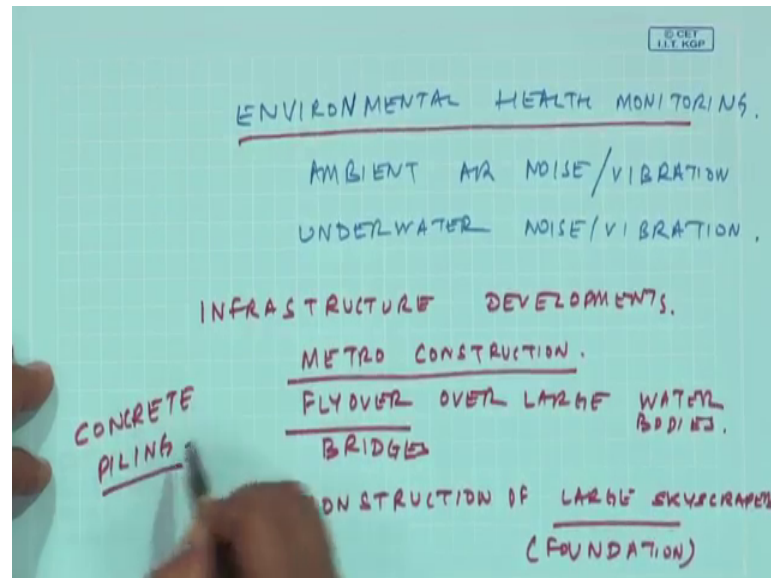 © CET
I.I.T. KGP
ENVIRONMENTAL HEALTH MONITORING.
AMBIENT AIR NOISE/VIBRATION
UNDERWATER NOISE/VIBRATION.
INFRASTRUCTURE DEVELOPMENTS.
METRO CONSTRUCTION.
FLYOVER OVER LARGE WATER
BODIES.
BRIDGES
CONCRETE
PILING
ONSTRUCTION OF LARGE SKYSCRAPERS
(FOUNDATION)